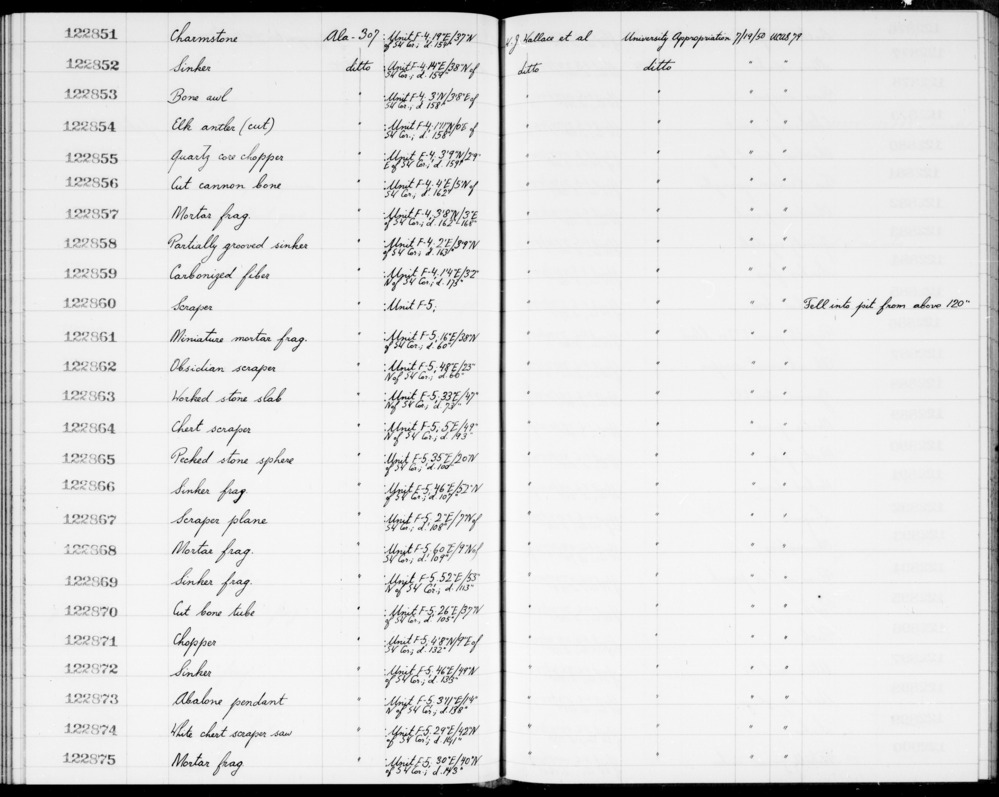 122851 Charmstone Ala-307 Unit F-4, 19"E/37"N W.J. Wallace et al University Appropriation 7/19/50 UCAS 79
of SW Cor.; d. 154"
122852 Sinker ditto Unit F-4, 14"E/38"N of ditto ditto " "
SW Cor.; d. 154"
122853 Bone awl " Unit F-4, 3"N/38"E of " " " "
SW Cor.; d. 158"
122854 Elk antler (cut) " Unit F-4, of " " " "
SW Cor.; d. 158"
122855 Quartz core chopper " Unit F-4, 3'9"N/29" " " " "
E of SW Cor.; d. 159"
122856 Cut cannon bone " Unit F-4, 4"E/5"N of " " " "
SW Cor.; d. 162"
122857 Mortar frag. " Unit F-4, 3'8"N/3"E " " " "
of SW Cor.; d. 162"-168"
122858 Partially grooved sinker " Unit F-4, 2"E/39"N " " " "
of SW Cor.; d. 163"
122859 Carbonized fiber " Unit F-4, 1'4"E/32" " " " "
N of SW Cor.; d. 173"
122860 Scraper " Unit F-5; " " " " Fell into pit from above 120"
122861 Miniature mortar frag. " Unit F-5, 16"E/38"N " " " "
of SW Cor.; d. 60"
122862 Obsidian scraper " Unit F-5, 48"E/25" " " " "
N of SW Cor.; d. 66"
122863 Worked stone slab " Unit F-5, 33"E/47" " " " "
N of SW Cor.; d. 73"
122864 Chert scraper " Unit F-5, 5"E/49" " " " "
N of SW Cor.; d.
122865 Pecked stone sphere " Unit F-5, 35"E/20"N " " " "
of SW Cor.; d. 100"
122866 Sinker frag. " Unit F-5, 46"E/52"N " " " "
of SW Cor.; d. 107"
122867 Scraper plane " Unit F-5, 2"E/7"N of " " " "
SW Cor.; d. 108"
122868 Mortar frag. " Unit F-5, 60"E/9"N of " " " "
SW Cor.; d. 109"
122869 Sinker frag. " Unit F-5, 52"E/53" " " " "
N of SW Cor.; d. 113"
122870 Cut bone tube " Unit F-5, 26"E/37"N " " " "
of SW Cor.; d. 105"
122871 Chopper " Unit F-5, 4'8"N/9"E of " " " "
SW Cor.; d. 132"
122872 Sinker " Unit F-5, 46"E/49"N " " " "
of SW Cor.; d. 135"
122873 Abalone pendant " Unit F-5, 3'11"E/14" " " " "
N of SW Cor.; d. 138"
122874 White chert scraper saw " Unit F-5, 29"E/42"N " " " "
of SW Cor.; d. 141"
122875 Mortar frag. " Unit F-5, 30"E/40"N " " " "
of SW Cor.; d. 143"